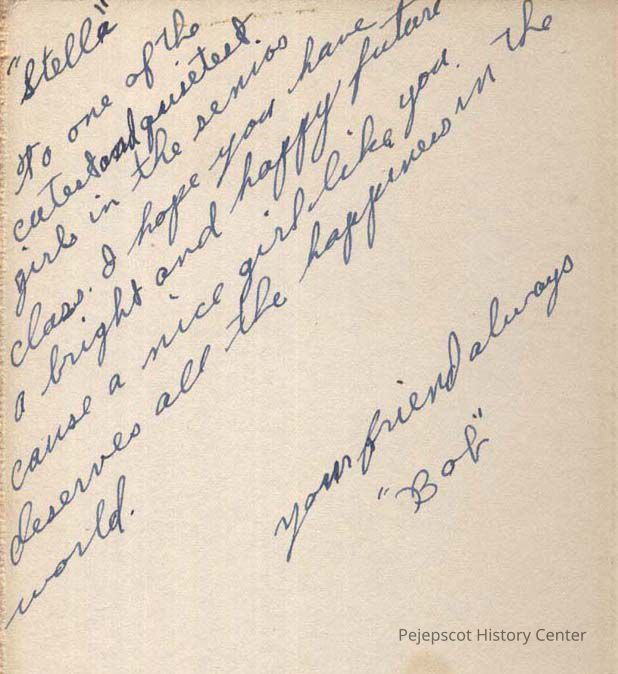 "Stella"
To one of the
cutest and quietest.
girls in the senior
class. I hope you have
a bright and happy future
cause a nice girl like you.
deserves all the happiness in the
world.
your friend always
"Bob"
Pejepscot History Center